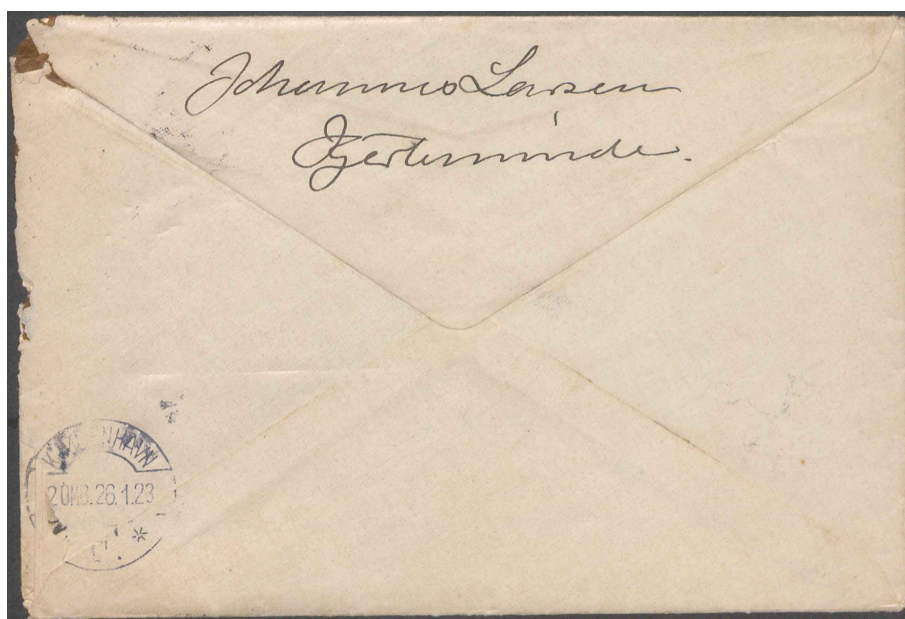 Johannes Larsen
Kjerteminde.
KJØBENHAVN
26.1.23